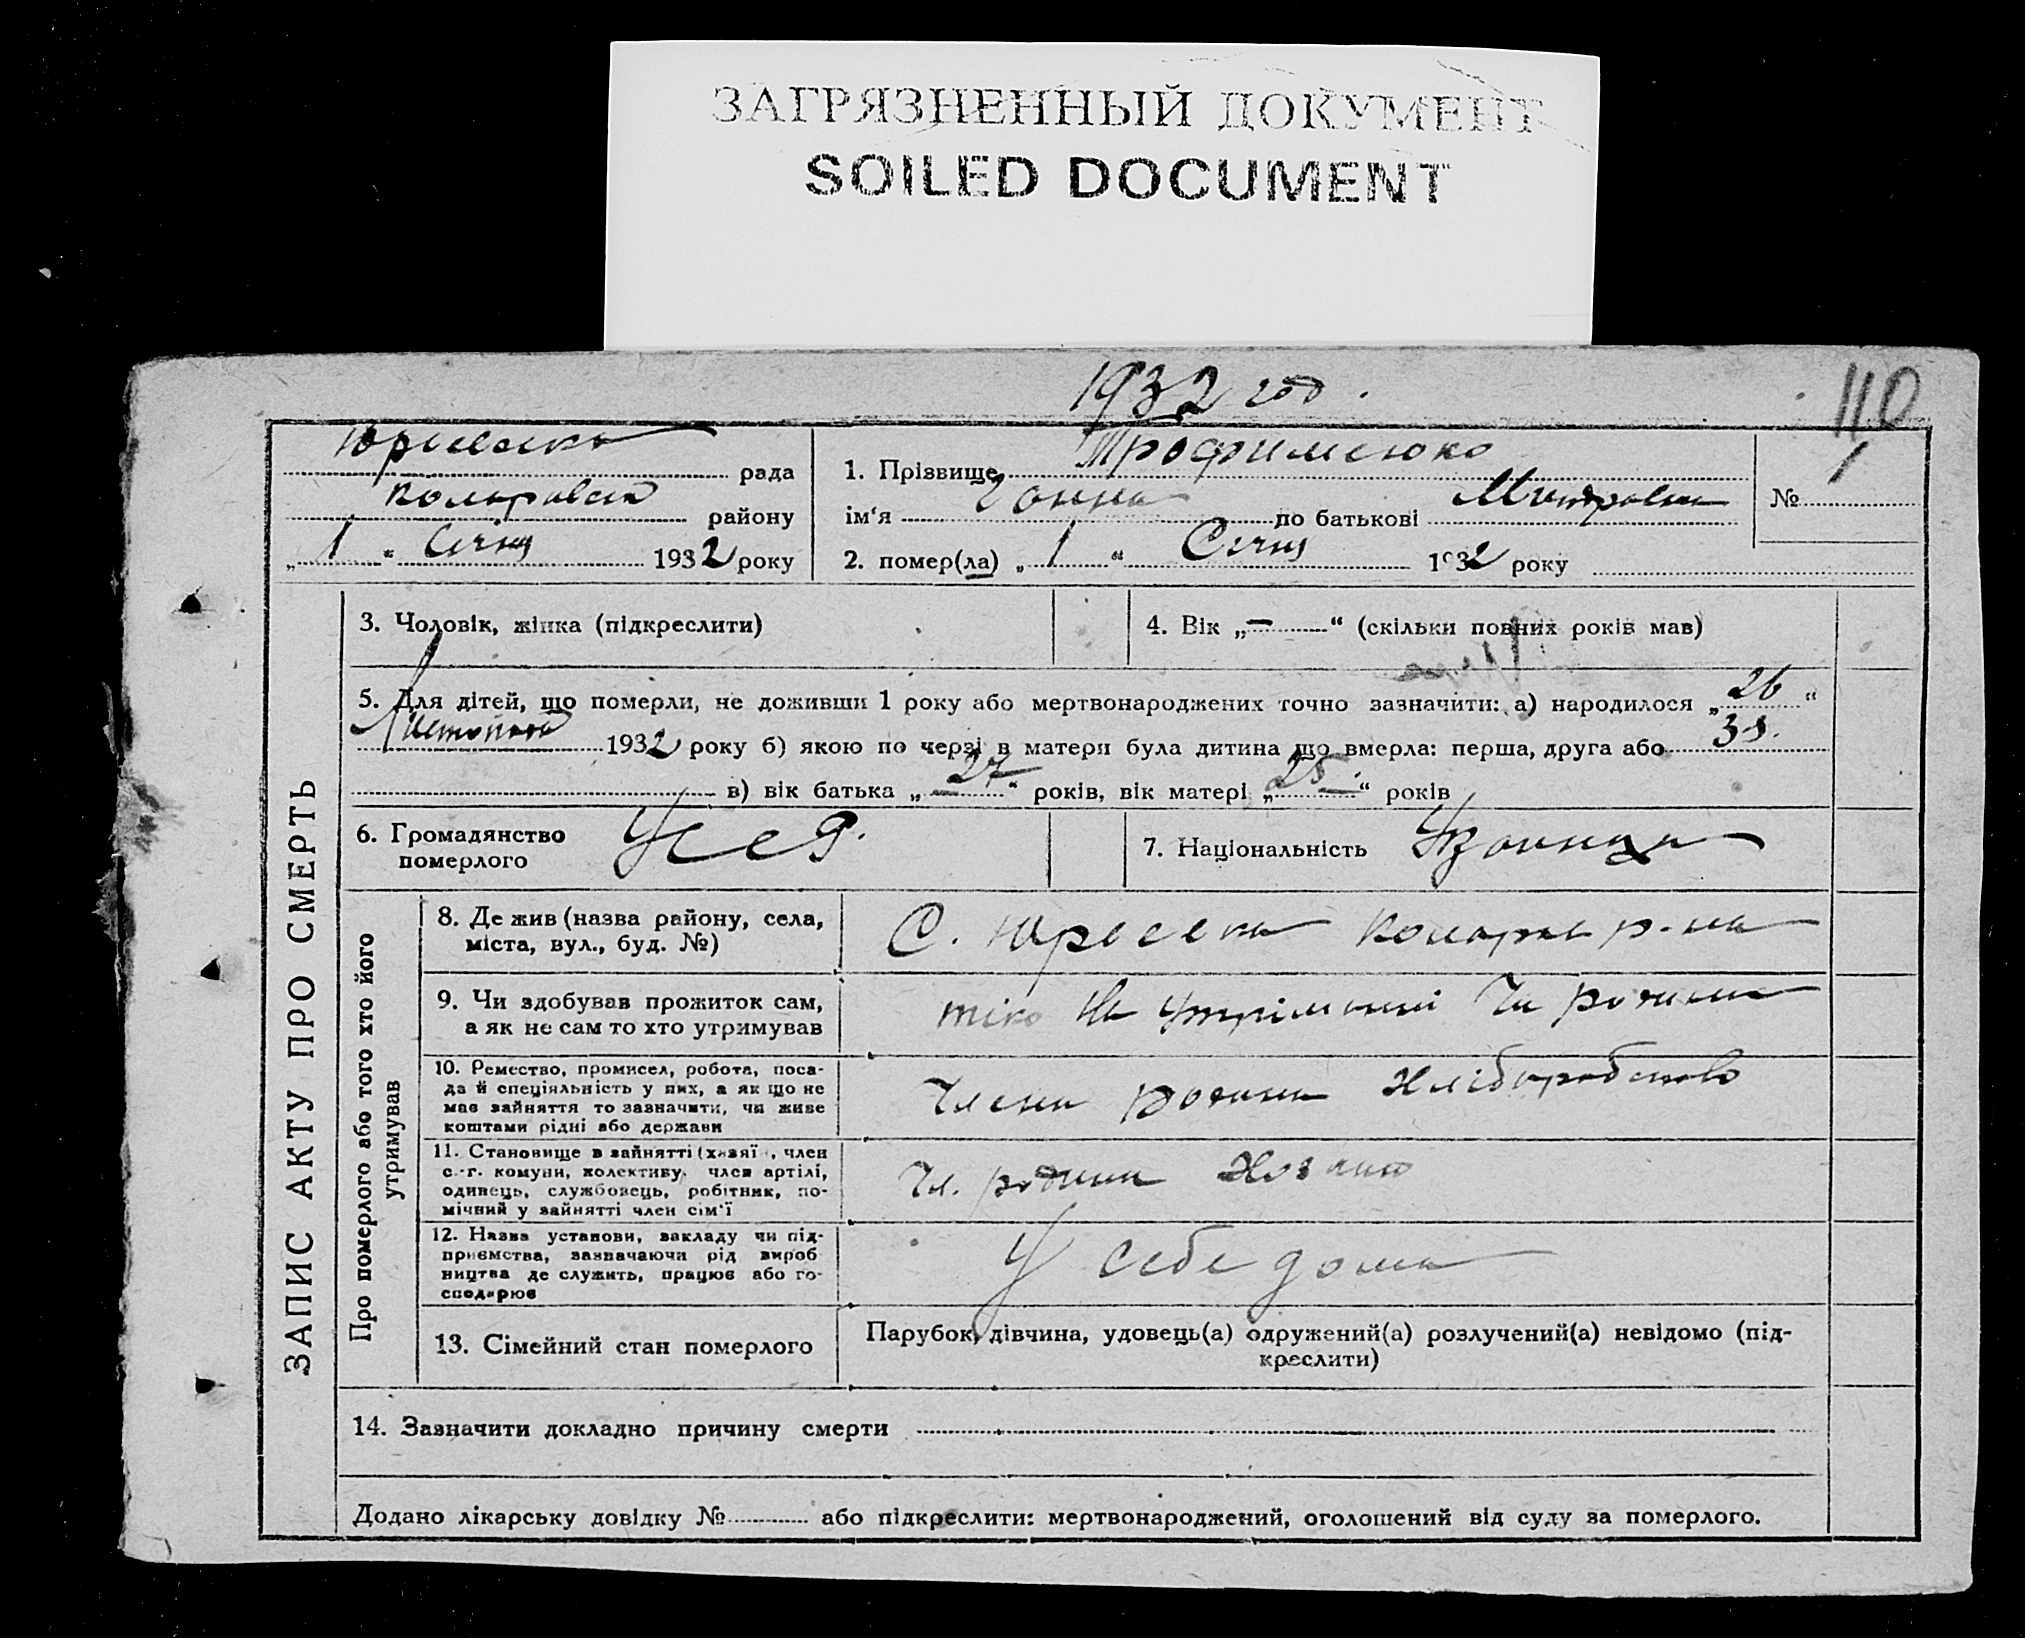 ЗАГРЯЗНЕННЫЙ ДОКУМЕНТ
SOILED DOCUMENT
1932 год.
110
рада
району
„ 1 “ Січня 1932 року
1. Прізвище
ім‘я Ганна по батькові
2. помер(ла) „ 1 “ Січня 1932 року
№ 1
ЗАПИС АКТУ ПРО СМЕРТЬ
3. Чоловік, жінка (підкреслити)
4. Вік „ – “ (скільки повних років мав)
5. Для дітей, що померли, не доживши 1 року або мертвонароджених точно зазначити: а) народилося „ 26 “
Листопада 1932 року б) якою по черзі в матери була дитина що вмерла: перша, друга або 3я.
в) вік батька „ 27 “ років, вік матері „ 25 “ років
6. Громадянство
померлого
7. Національність
Про померлого або того хто його
утримував
8. Де жив (назва району, села,
міста, вул., буд. №)
С. р-на
9. Чи здобував прожиток сам,
а як не сам то хто утримував
На утріманні
10. Ремество, промисел, робота, поса-
да й спеціяльність у них, а як що не
має зайняття то зазначити, чи живе
коштами рідні або держави
Члени родини
11. Становище в зайнятті (хазяї , член
с.-г. комуни, колективу, член артілі,
одинець, службовець, робітник, по-
мічний у зайнятті член сім‘ї
Чл. родини
12. Назва установи, закладу чи під-
приємства, зазначаючи рід вироб
ництва де служить, працює або го-
сподарює
У себе дома
13. Сімейний стан померлого
Парубок, дівчина, удовець(а) одружений(а) розлучений(а) невідомо (під-
креслити)
14. Зазначити докладно причину смерти
Додано лікарську довідку № або підкреслити: мертвонароджений, оголошений від суду за померлого.